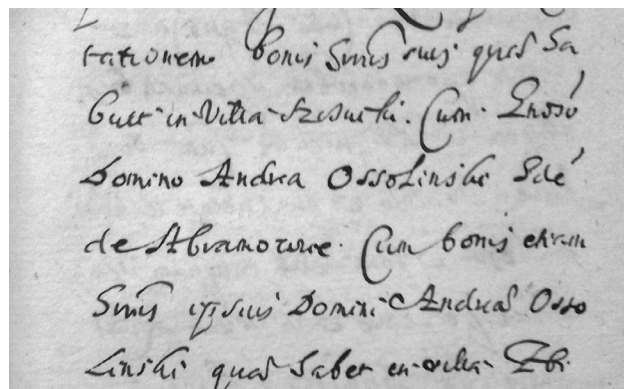 tationem bonis Smis suis quas Ha
buit in Villa Szczucki. Cum Gnoso
Domino Andrea Ossolinski
de Abramowice. Cum bonis etiam
Smis ipsius Domini Andreas Osso
linski quas habet in villa Zbi